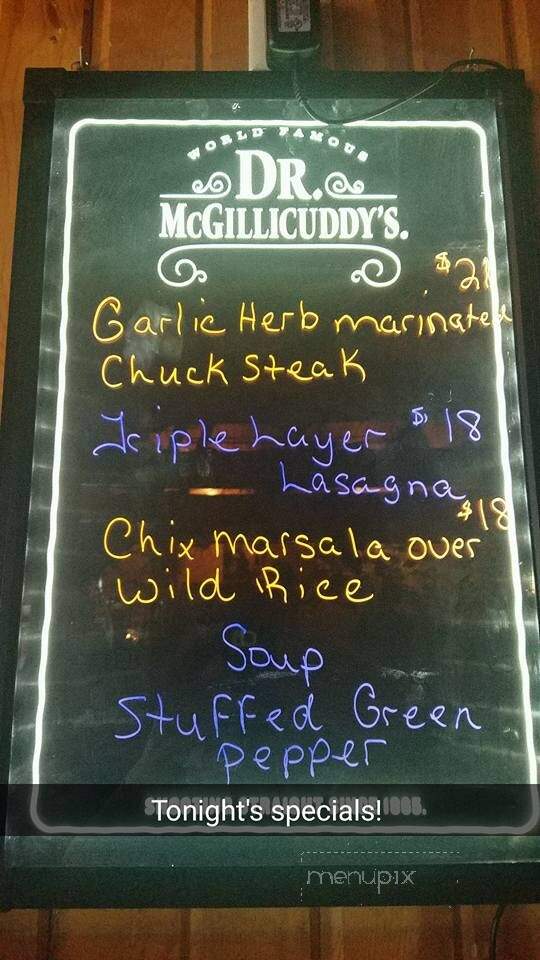 WORLD FAMOUS
DR.
McGILLICUDDY'S.
Garlic Herb marinated
Chuck Steak
Triple Layer $18
Lasagna
$18
Chix marsala over
wild Rice
Soup
Stuffed Green
pepper
Tonight's specials!
menupix